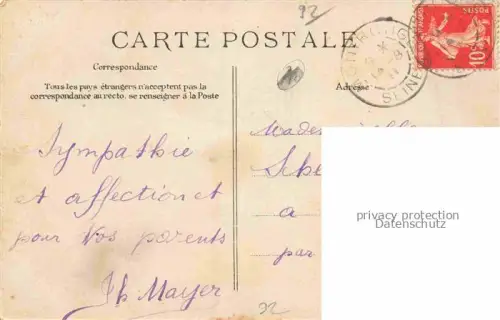 92
CARTE POSTALE
Correspondance
Tous les pays étrangers n'acceptent pas la
correspondance au recto. se renseigner à la Poste
Adresse
SEINE
POSTES
10
Sympathie
et affection et
pour Vos parents
Th Mayer
Made
Sche
a
par
privacy protection
Datenschutz
92